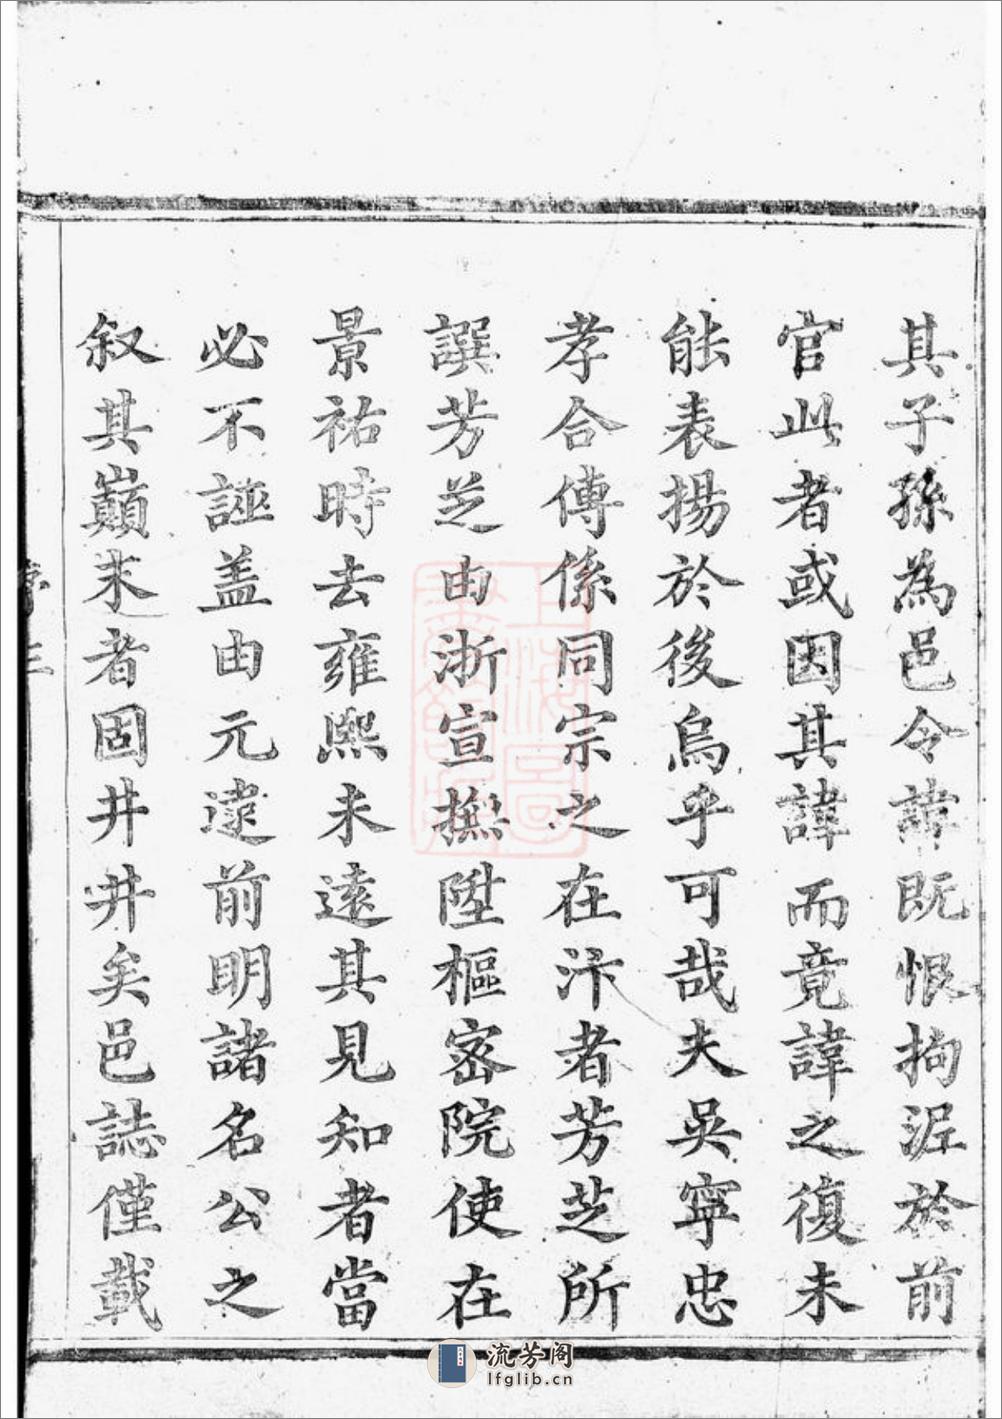 其子孫為邑令諱既恨拘泥於前
官此者或因其諱而竟諱之復未
能表揚於後烏乎可哉夫吳寧忠
孝合傳係同宗之在汴者芳芝所
譔芳芝由浙宣撫陞樞密院使在
景祐時去雍熙未遠其見知者當
必不誣盖由元逮前明諸名公之
叙其巔末者固井井矣邑誌僅載
三
流芳阁
lfglib.cn